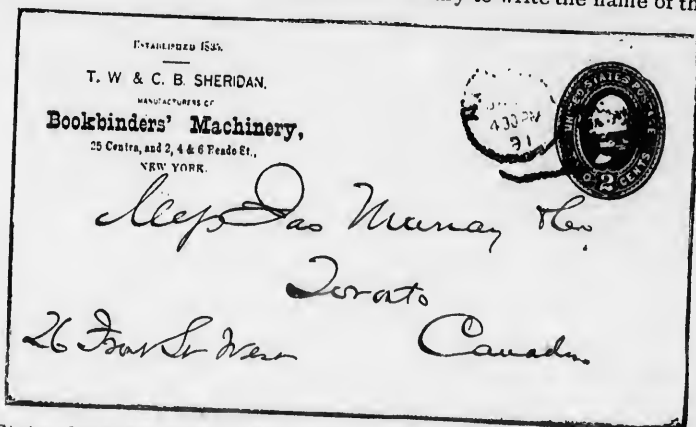 to write the name of th
ESTABLISHED 1835.
T. W & C. B. SHERIDAN,
MANUFACTURERS OF
Bookbinders' Machinery,
25 Centra, and 2, 4 & 6 Reade St.,
NEW YORK.
430 PM
91
UNITED STATES POSTAGE
2 CENTS
Jas Murray & Co
Toronto
26 Front St West
Canada